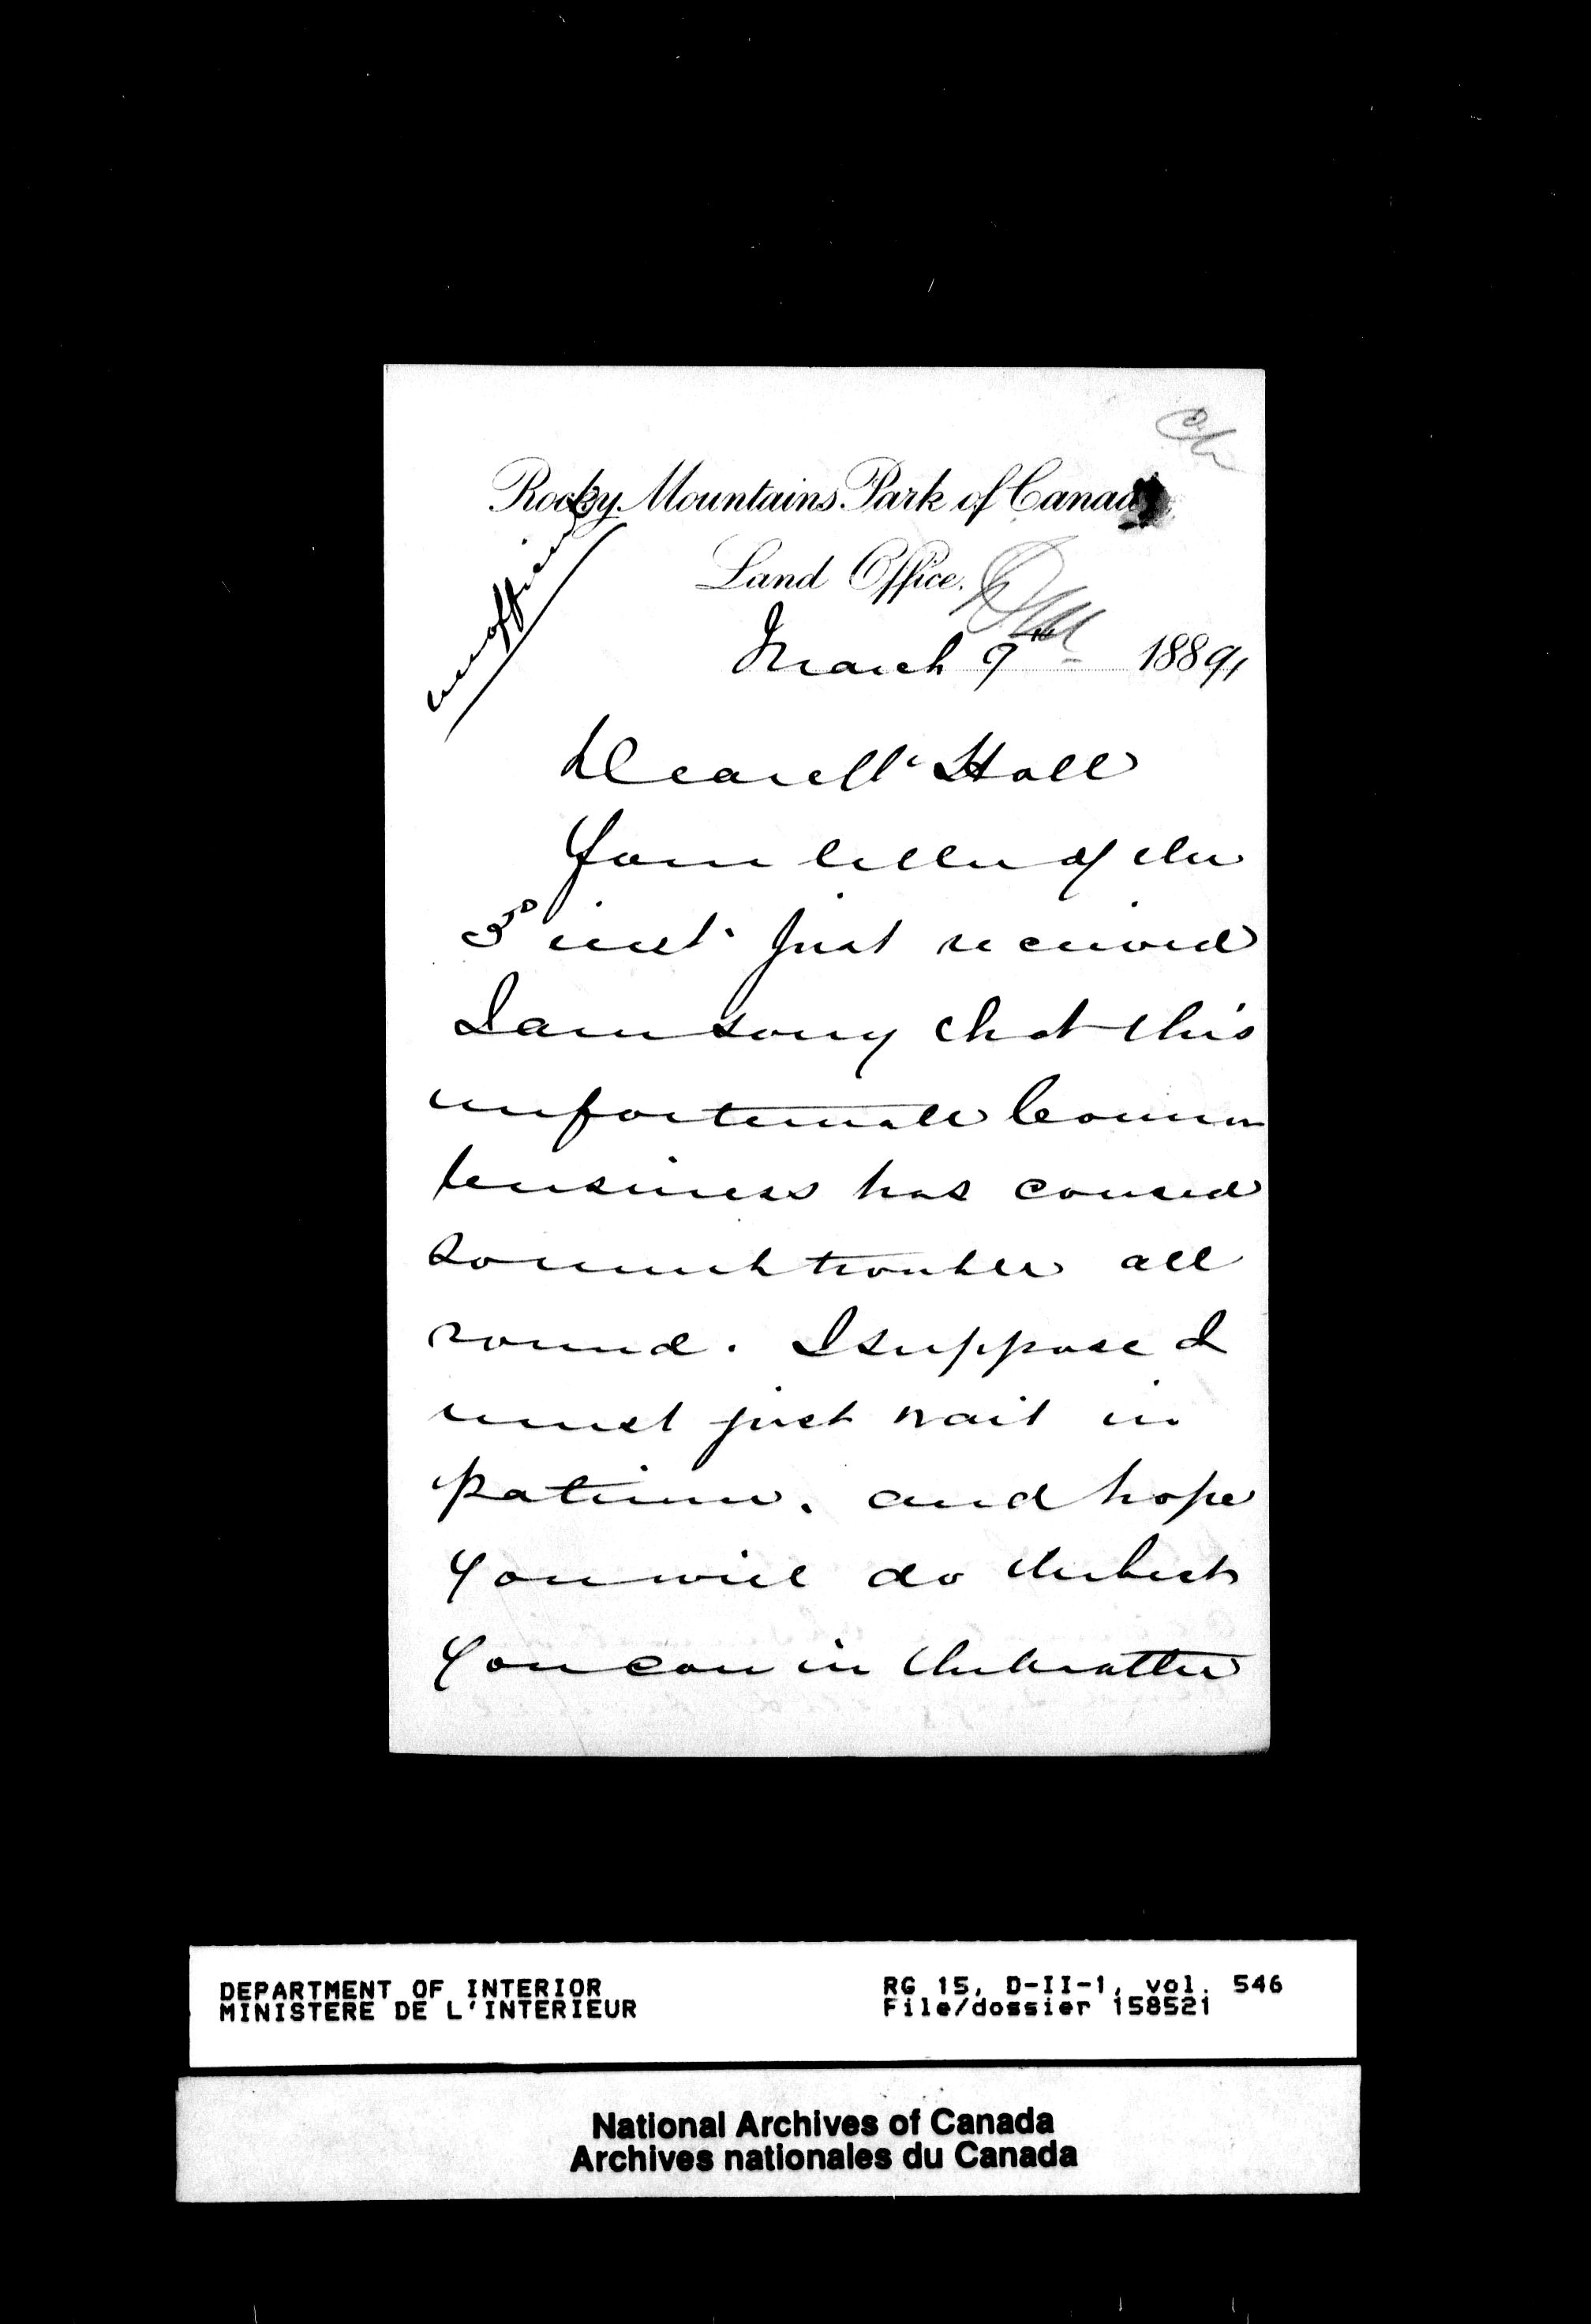 Rocky Mountains Park of Canada
Land Office.
unofficial
March 9th 1889
Dear Mr Hall
Your letter of the
3rd inst. just received
I am sorry that this
unfortunate
business has caused
so much trouble all
round. I suppose I
must just wait in
patience. and hope
you will do the best
you can in the matter
DEPARTMENT OF INTERIOR
MINISTERE DE L'INTERIEUR
RG 15, D-II-1, vol. 546
File/dossier 158521
National Archives of Canada
Archives nationales du Canada